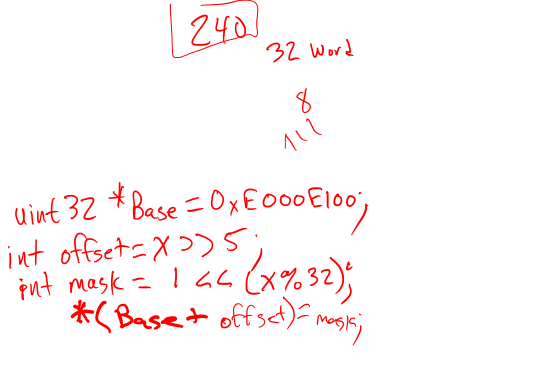 240
32 word
8
uint32 *Base = 0xE000E100;
int offset = x >> 5;
int mask = 1 << (x%32);
*(Base + offset) = mask;